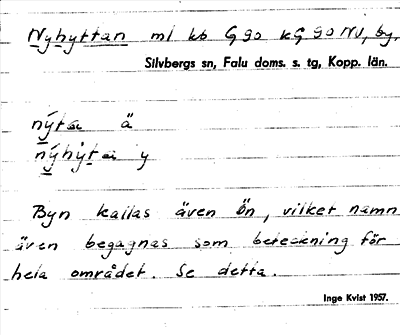 Nyhyttan ml kb G 90 kG 90 NV, by,
Silvbergs sn, Falu doms. s. tg, Kopp. län.
nýta ä
nýhýta y
Byn kallas även Ön, vilket namn
även begagnas som beteckning för
hela området. Se detta.
Inge Kvist 1957.